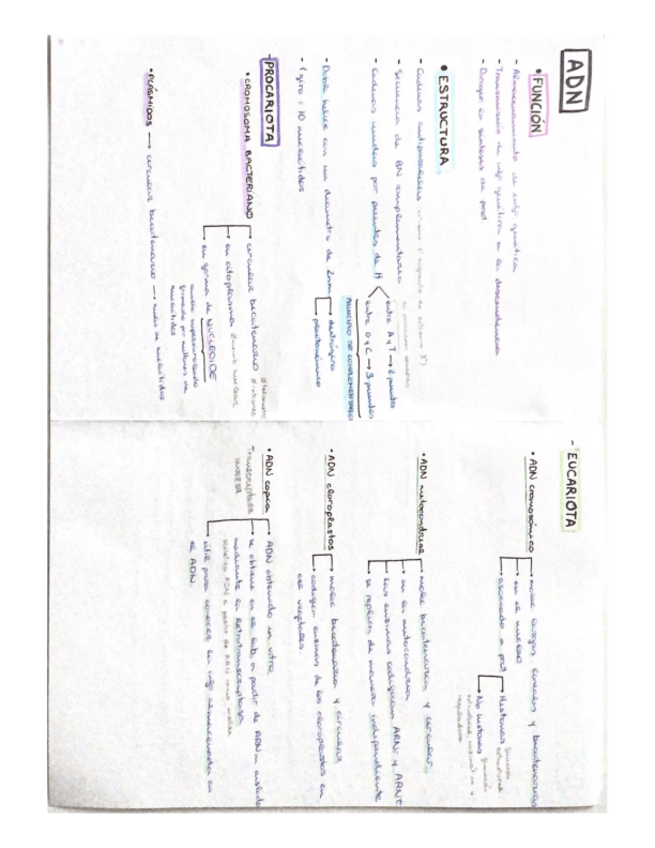 ADN
• FUNCIÓN
- Almacenamiento de info genética
- Transmisión de info genética a la descendencia
- Dirigir la síntesis de prot
• ESTRUCTURA
- Cadenas antiparalelas
- Secuencia de BN complementaria
- Cadenas unidas por puentes de H
entre A y T → 2 puentes
entre G y C → 3 puentes
PRINCIPIO DE COMPLEMENTARIEDAD
- Doble hélice con un diámetro de 2nm
dextrógira
plectonémica
- 1 giro = 10 nucleótidos
- PROCARIOTA
• CROMOSOMA BACTERIANO
circular bicatenario
en citoplasma
en forma de NUCLEOIDE
formada por millones de
nucleótidos
• PLÁSMIDOS → circular bicatenario → miles de nucleótidos
- EUCARIOTA
• ADN cromosómico
molec largas, lineales y bicatenarias
en el núcleo
asociado a prot
Histonas función estructural
No histonas función
reguladora
• ADN mitocondrial
molec bicatenarias y circular
en la mitocondria
sus enzimas codifican ARNr y ARNt
se replica de manera independiente
• ADN cloroplastos
molec bicatenaria y circular
codifica enzimas de los cloroplastos en
cel vegetales
• ADN copia
Transcriptasa
inversa
ADN obtenido in vitro
se obtiene en el lab a partir de ARNm aislado
mediante la retrotranscriptasa
útil para conocer la info almacenada en
el ADN.